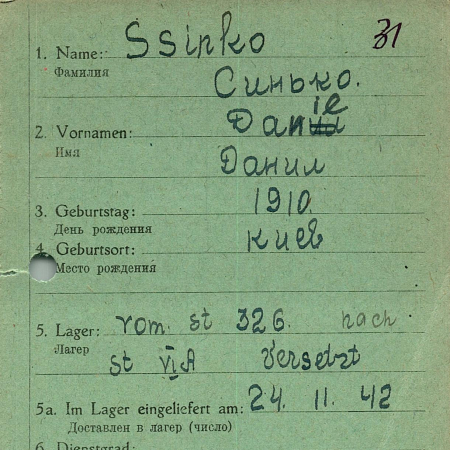 31
1. Name: Ssinko
Фамилия
Синько.
ie
2. Vornamen: Dan
Имя
Данил
3. Geburtstag: 1910.
День рождения
4. Geburtsort: Киев
Место рождения
5. Lager: vom st 326. nach
Лагер
st VI A versetzt
5a. Im Lager eingeliefert am: 24. 11. 42
Доставлен в лагер (число)
6. Dienstgrad: